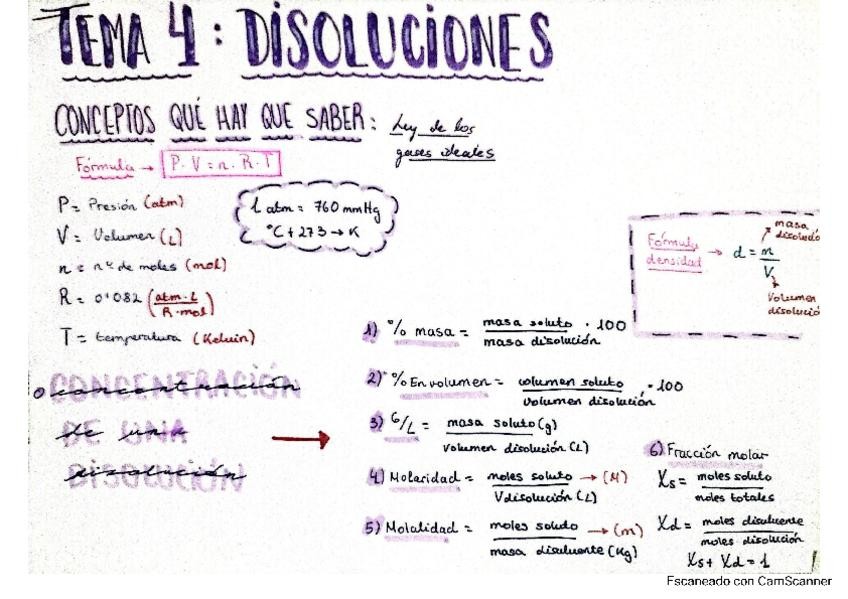 TEMA 4: DISOLUCIONES
CONCEPTOS QUÉ HAY QUE SABER: Ley de los
gases ideales
Fórmula → P. V = n. R. T
P = Presión (atm)
V = Volumen (L)
n = nº de moles (mol)
R = 0'082 (atm·L / R·mol)
T = temperatura (Kelvin)
1 atm = 760 mmHg
°C + 273 → K
Fórmula densidad → d = m / V
masa disolució
Volumen disolució
CONCENTRACIÓN
DE UNA
DISOLUCIÓN
→
1) % masa = masa soluto / masa disolución · 100
2) % En volumen = volumen soluto / volumen disolución · 100
3) G/L = masa soluto (g) / volumen disolución (L)
4) Molaridad = moles soluto / Vdisolución (L) → (M)
5) Molalidad = moles soluto / masa disolvente (Kg) → (m)
6) Fracción molar
Xs = moles soluto / moles totales
Xd = moles disolvente / moles disolución
Xs + Xd = 1
Escaneado con CamScanner